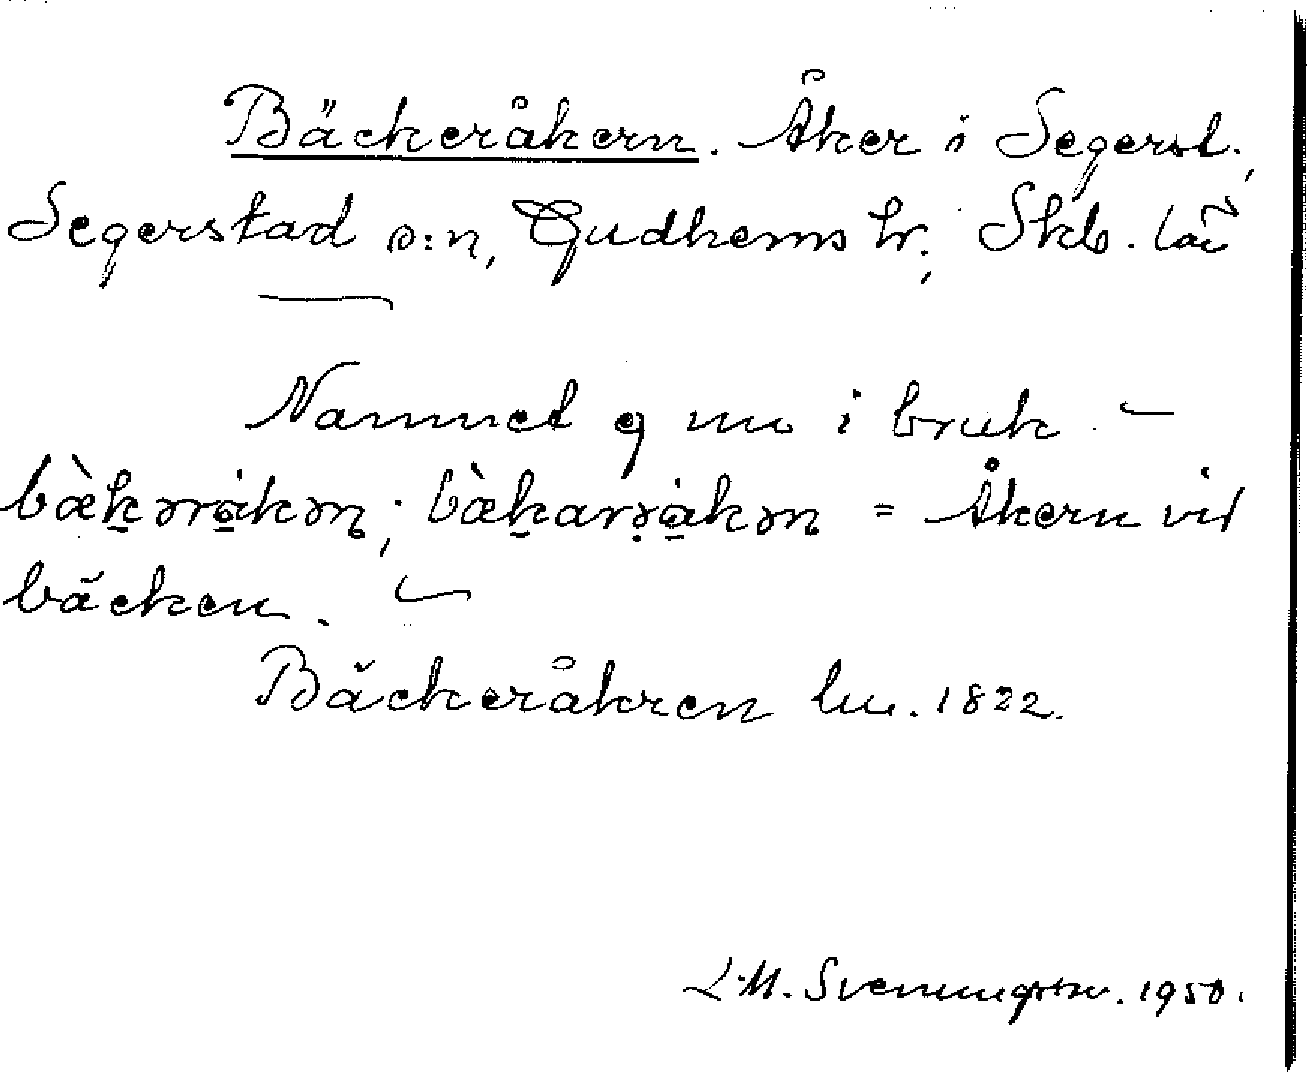 Bäckeråkern. Åker i Segerst.,
Segerstad s:n, Gudhems hr., Skb. län
Namnet ej nu i bruk –
bàkəråkəɳ; bàkarṣåkəɳ = Åkern vid
bäcken. –
Bäckeråkren lm. 1822.
L.M. Svenungsson. 1950.